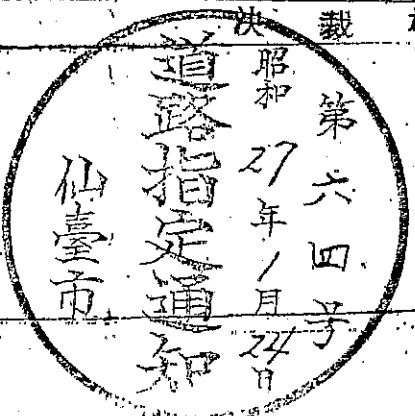 裁決
第六四号
昭和27年1月24日
道路指定通知
仙臺市